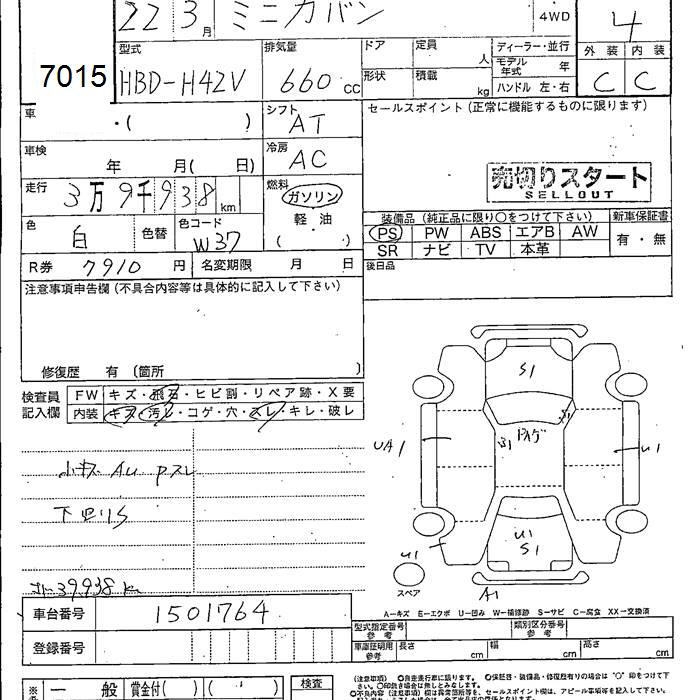 22 3月 ミニカバン 4WD 4
型式 排気量 ドア 定員 人 ディーラー・並行 外装 内装
7015 HBD-H42V 660cc 形状 積載 kg モデル年式 年 C C
ハンドル 左・右
車 ・( ) シフト AT セールスポイント(正常に機能するものに限ります)
車検 年 月( 日) 冷房 AC
売切りスタート
SELLOUT
走行 3万9千938km 燃料 ガソリン
軽油
( ・)
色 白 色替 色コード W37
装備品(純正品に限り○をつけて下さい) 新車保証書
PS PW ABS エアB AW 有・無
SR ナビ TV 本革
R券 7910円 名変期限 月 日 後日品
注意事項申告欄(不具合内容等は具体的に記入して下さい)
修復歴 有 (箇所 )
検査員 FW キズ・飛石・ヒビ割・リペア跡・X要
記入欄 内装 キズ・汚レ・コゲ・穴・スレ・キレ・破レ
S1
UA1 U1
U1 S1
U1 A1
スペア
39938k
車台番号 1501764
登録番号
A−キズ E−エクボ U−凹み W−補修跡 S−サビ C−腐食 XX−交換済
型式指定番号 参考 類別区分番号 参考
車庫証明用 参考 長さ cm 幅 cm 高さ cm
一般 賞金付( ) ( ・ ) 検査